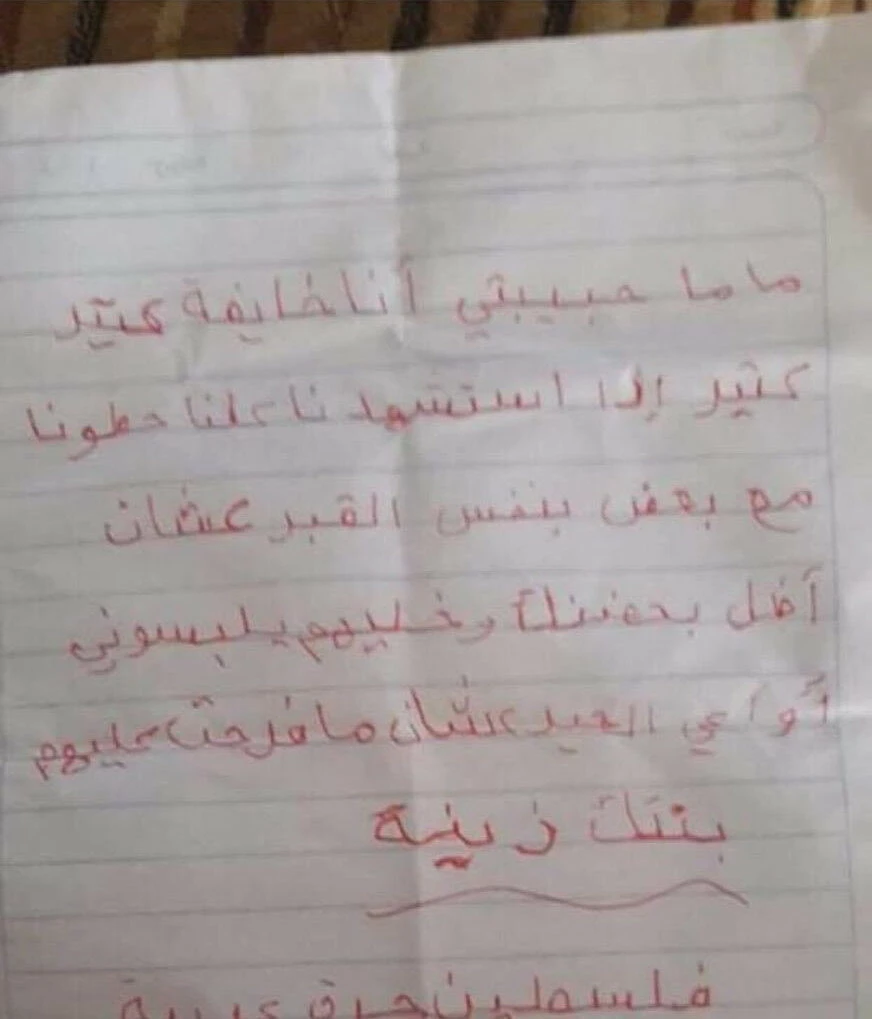 ماما حبيبتي أنا خايفة كتير
كتير إذا استشهدنا كلنا حطونا
مع بعض بنفس القبر عشان
أظل بحضنك وخليهم يلبسوني
أواعي العيد عشان ما فرحت عليهم
بنتك زينة
فلسطين حرة عربية